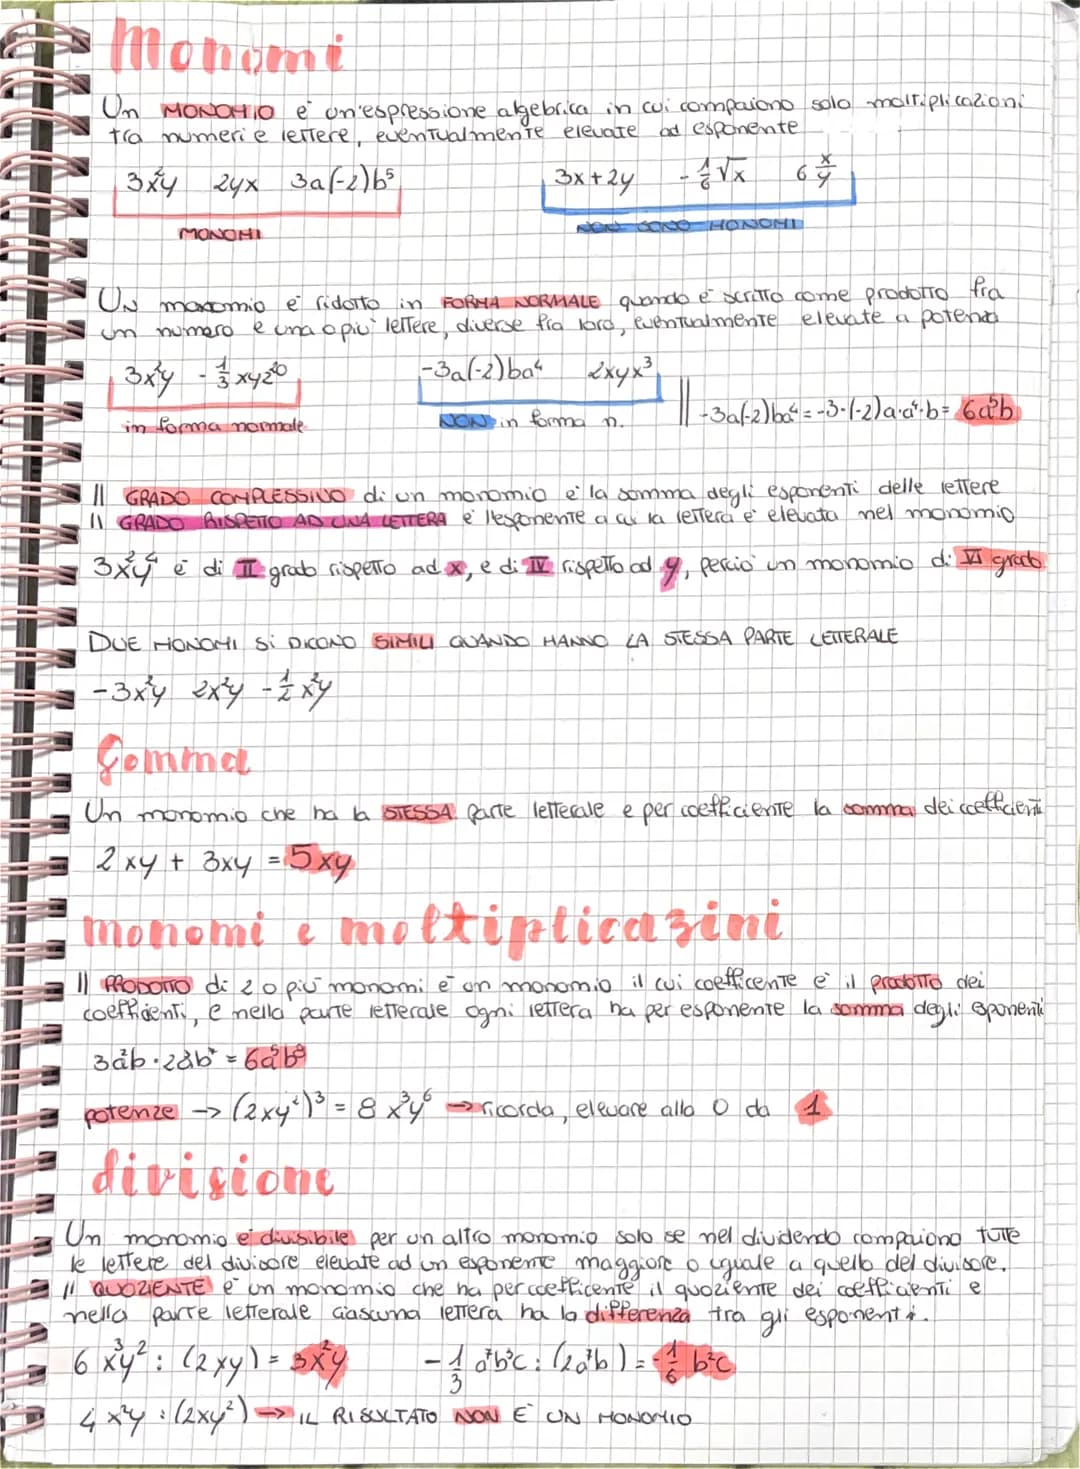 Monomi
Un MONOMIO è un'espressione algebrica in cui compaiono solo moltiplicazioni
tra numeri e lettere, eventualmente elevate ad esponente
3x²y 2yx 3a(-2)b⁵ 3x+2y -1/6√x 6 x/y
MONOMI NON SONO MONOMI
Un monomio è ridotto in FORMA NORMALE quando è scritto come prodotto fra
un numero e una o più lettere, diverse fra loro, eventualmente elevate a potenza
3x²y -1/3xyz²⁰ -3a(-2)ba⁴ 2xyx³
in forma normale NON in forma n. || -3a(-2)ba⁴=-3·(-2)a·a⁴·b= 6a⁵b
Il GRADO COMPLESSIVO di un monomio è la somma degli esponenti delle lettere
Il GRADO RISPETTO AD UNA LETTERA è l'esponente a cui la lettera è elevata nel monomio
3x²y⁴ è di II grado rispetto ad x, e di IV rispetto ad y, perciò un monomio di VI grado
DUE MONOMI SI DICONO SIMILI QUANDO HANNO LA STESSA PARTE LETTERALE
-3x²y 2x²y -1/2x²y
Somma
Un monomio che ha la STESSA parte letterale e per coefficiente la somma dei coefficienti
2xy + 3xy = 5xy
monomi e moltiplicazini
Il PRODOTTO di 2 o più monomi è un monomio il cui coefficente è il prodotto dei
coefficienti, e nella parte letterale ogni lettera ha per esponente la somma degli esponenti
potenze → (2xy²)³ = 8x³y⁶ → ricorda, elevare allo 0 da 1
divisione
Un monomio è divisibile per un altro monomio solo se nel dividendo compaiono tutte
le lettere del divisore elevate ad un esponente maggiore o uguale a quello del divisore.
Il QUOZIENTE è un monomio che ha per coefficente il quoziente dei coefficienti e
nella parte letterale ciascuna lettera ha la differenza tra gli esponenti.
6x³y² : (2xy) = 3x²y -1/3 a⁷b³c : (2a⁷b) = -1/6 b²c
4x²y : (2xy²) → IL RISULTATO NON È UN MONOMIO